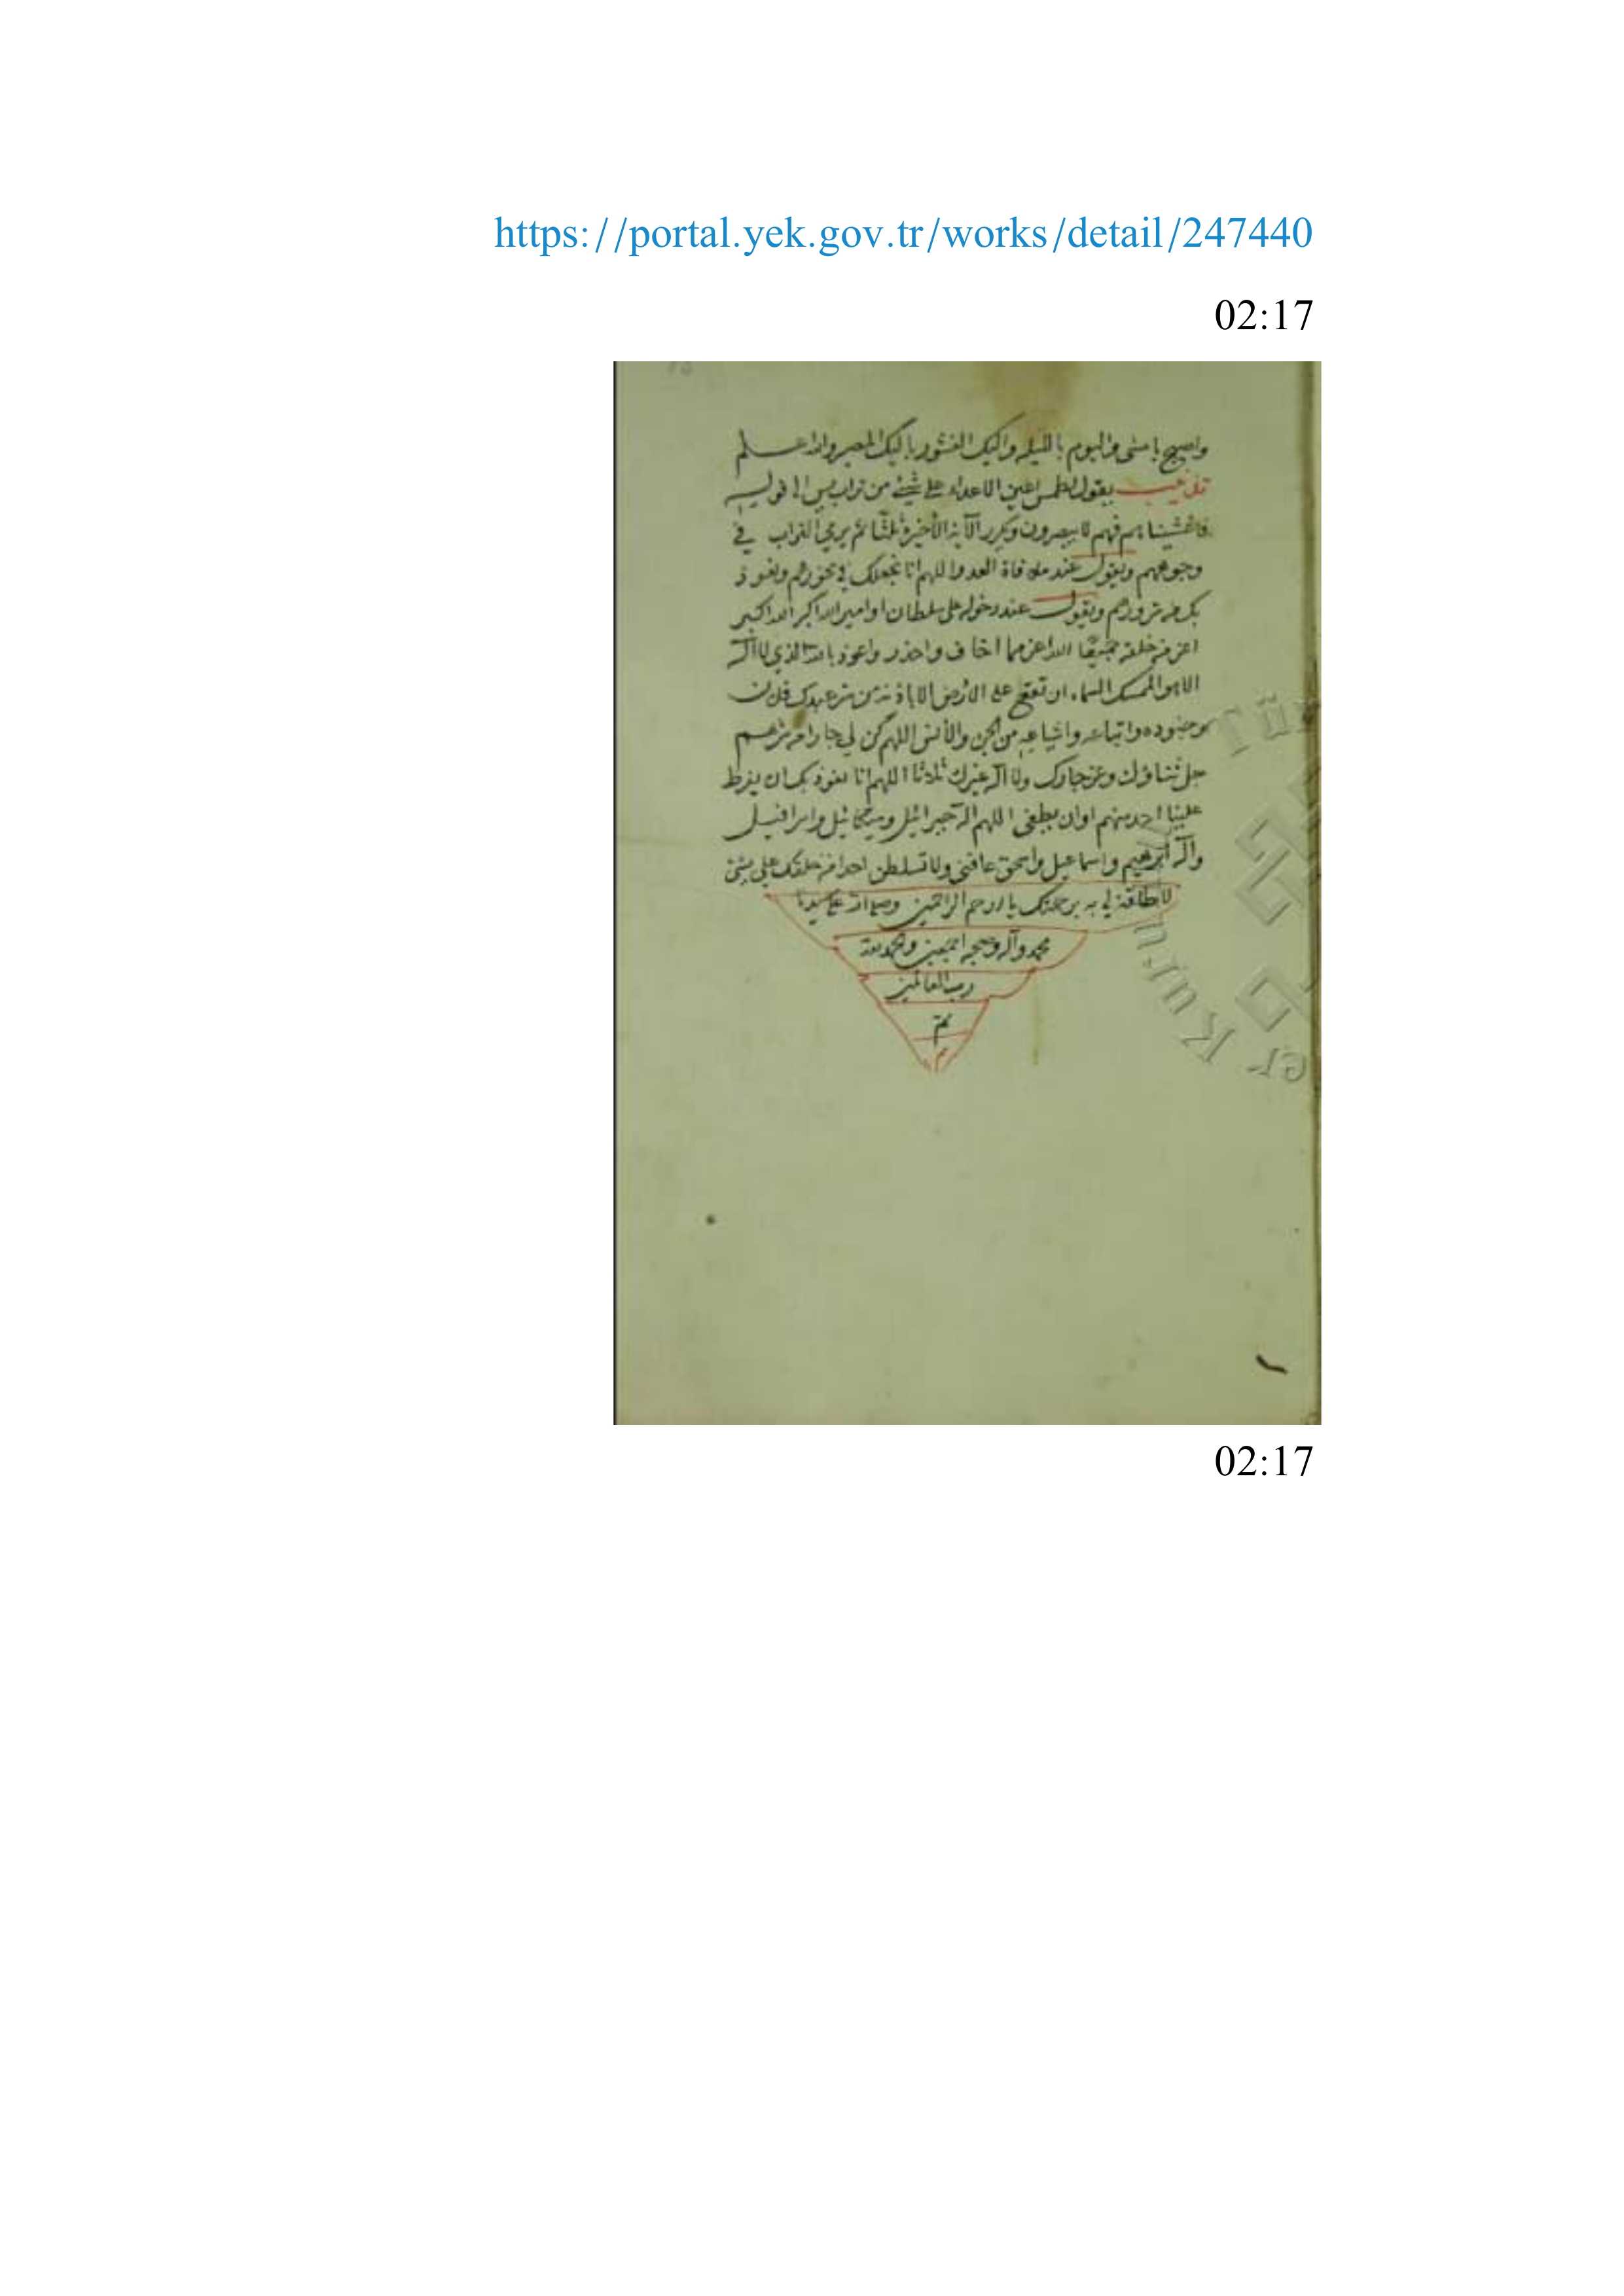 https://portal.yek.gov.tr/works/detail/247440
02:17
واصبح بامسى واليوم بالليلة واليك النشور باليك المصير واذا علم
يقول لطمس اعين الاعداء على شئ من تراب يس الى قوله
فاغشيناهم فهم لا يبصرون ويكرر الآية الأخيرة ثلثا ثم يرمي التراب في
وجوههم ويقول عند ملاقاة العدو اللهم انا نجعلك في نحورهم ونعوذ
بك من شرورهم ويقول عند دخوله على سلطان او امير الله اكبر الله اكبر
اعز من خلقه جميعًا الله اعز مما اخاف واحذر واعوذ بالله الذي لا اله
الا هو الممسك السماء ان تقع على الارض الا باذنه من شر عبدك فلان
وجنوده واتباعه واشياعه من الجن والأنس اللهم كن لي جارا من شرهم
جل ثناؤك وعز جارك ولا اله غيرك ثلاثا اللهم انا نعوذ بك ان يفرط
علينا احد منهم او ان يطغى اللهم اله جبرائيل وميكائيل واسرافيل
واله ابرهيم واسماعيل واسحق عافني ولا تسلطن احدا من خلقك علي بشئ
لا طاقة لي به برحمتك يا ارحم الراحمين وصلى الله على سيدنا
محمد وآله وصحبه اجمعين والحمد لله
رب العالمين
تم
م
02:17